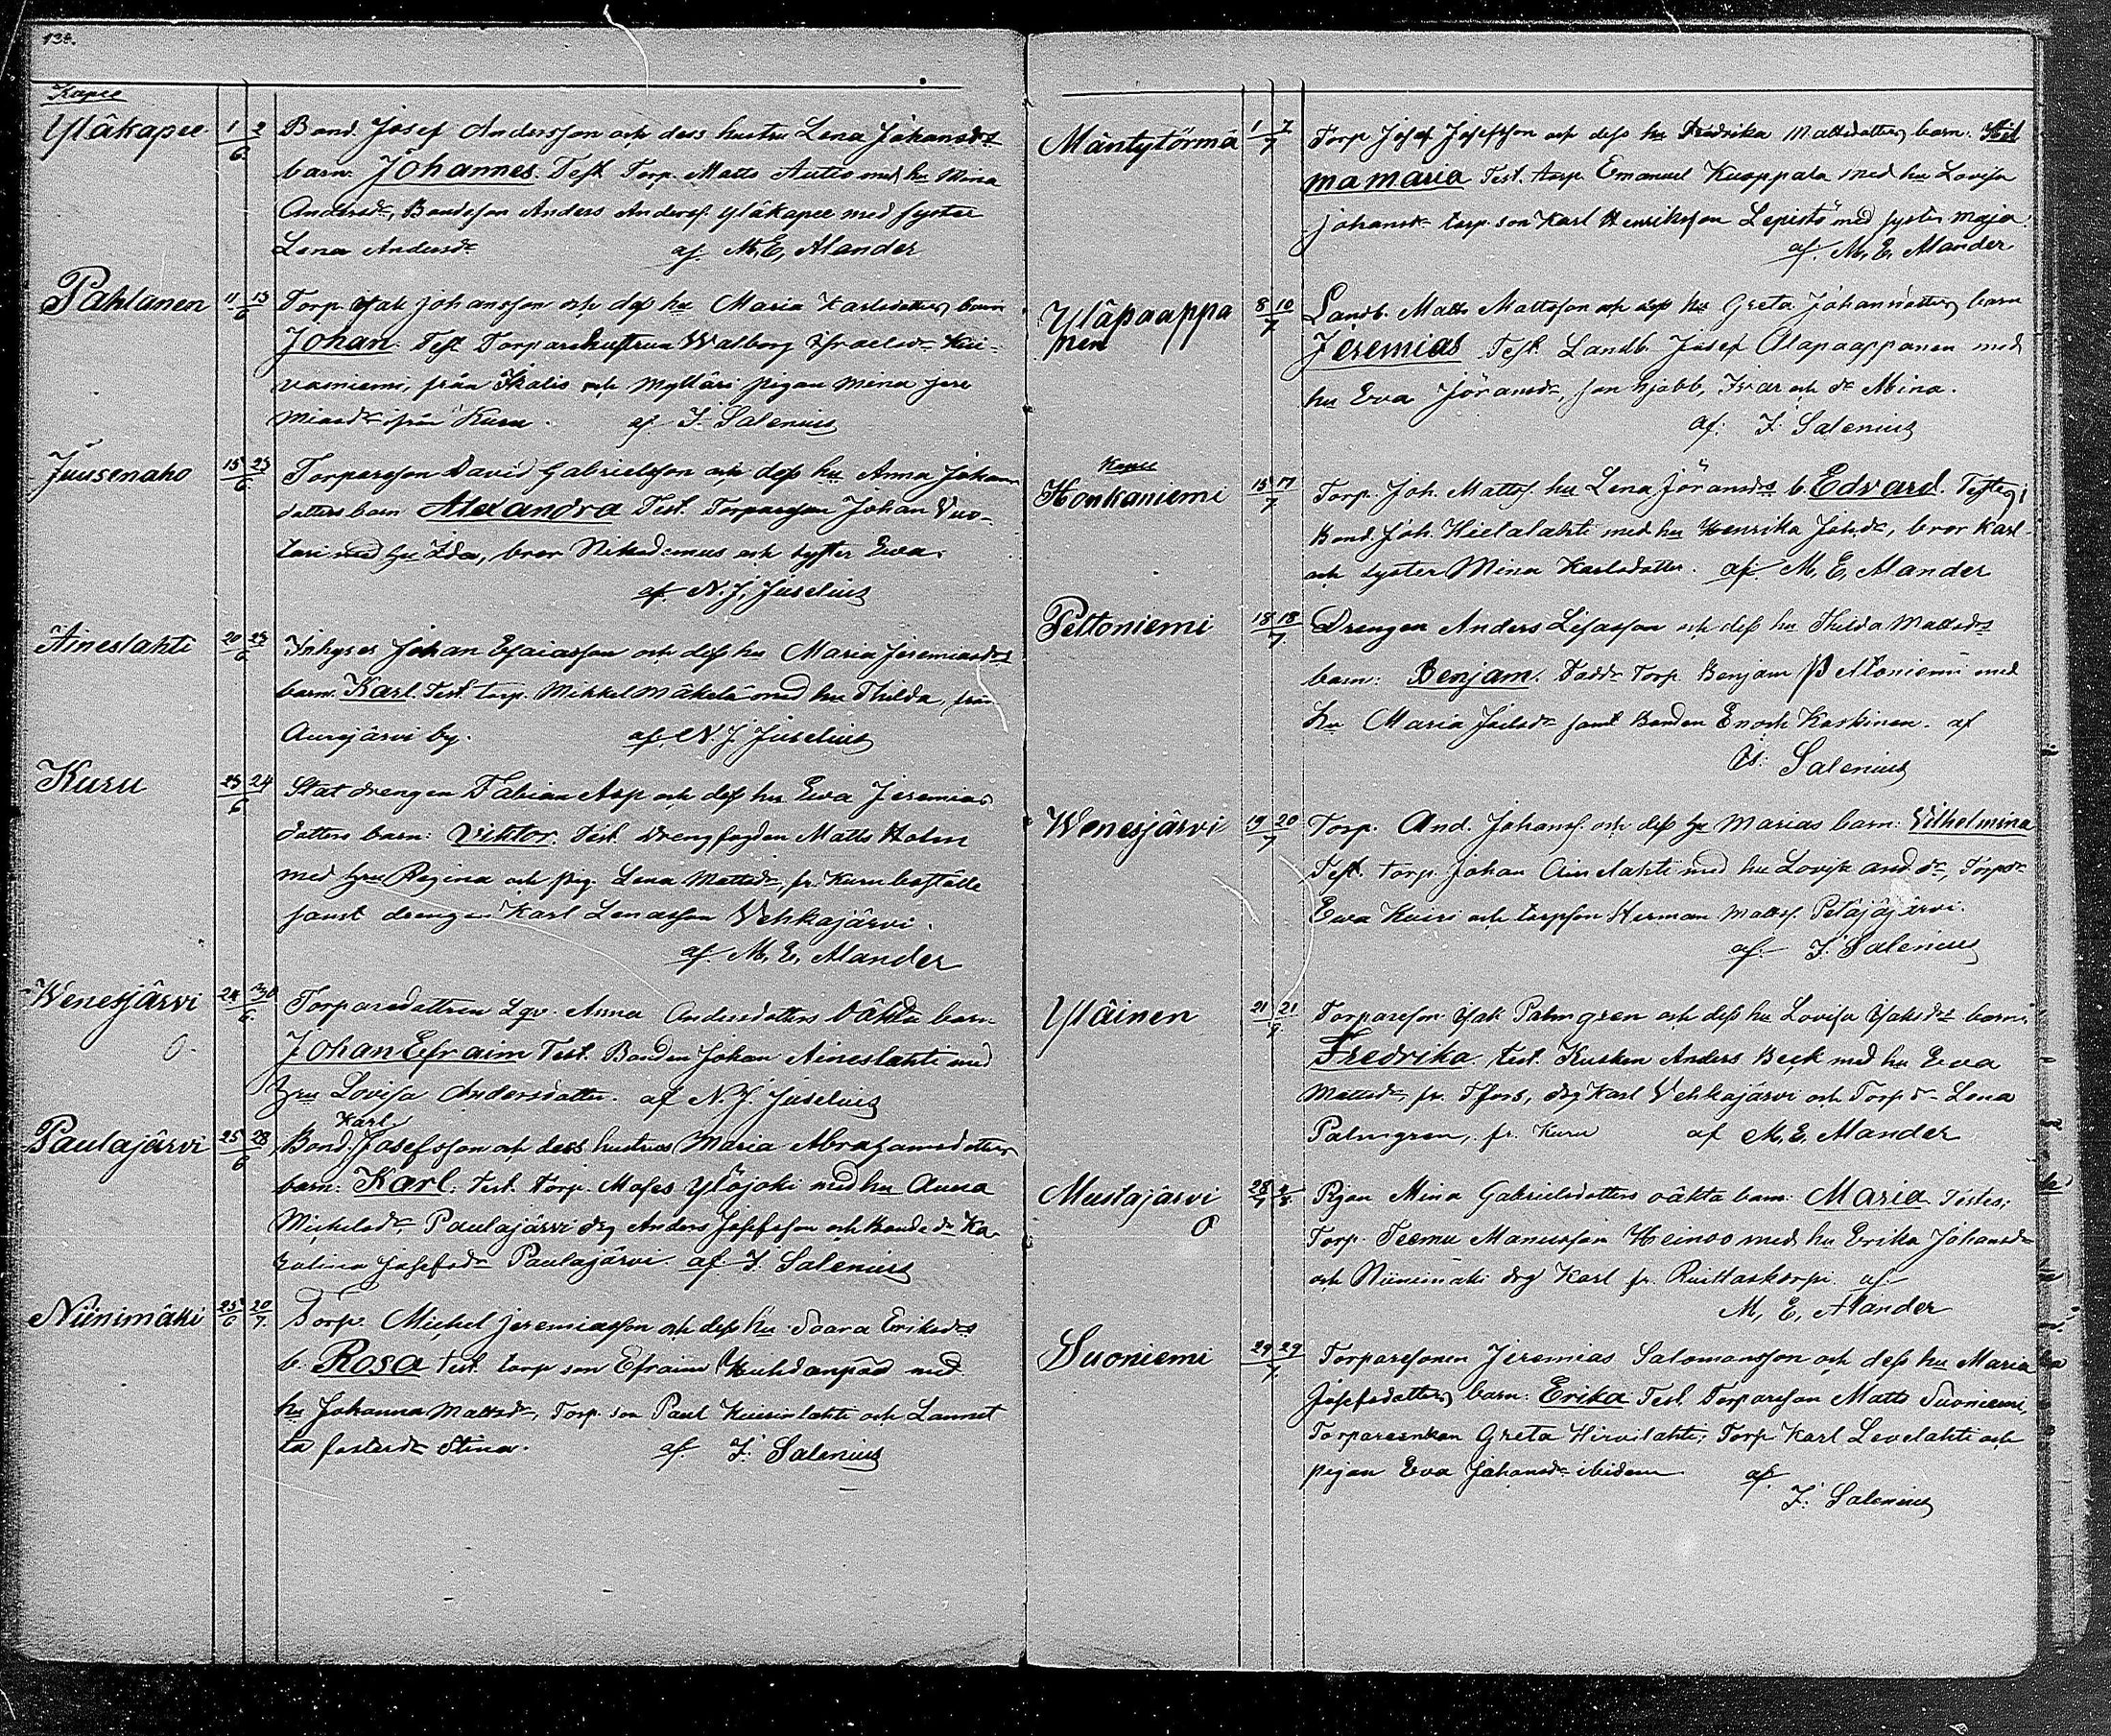 138.
Kapee
Yläkapee 1 2/6 Bond. Josef Andersson och dess hustru Lena Johansdrs
barn: Johannes. Test. Torp. Matts Autio med hu Mina
Andersdr, Bondeson Anders Anderss. Yläkapee med syster
Lena Andersdr. af M. E. Alander
Pahlanen 11 13/6 Torp. Isak Johansson och dess hu Maria Karlsdotters barn
Johan. Test. Torparehustrun Walborg Israelsdr
niemi, från Ikalis och Mylläri pigan Mina Jere
miasdr ifrån Kuru. af I. Salenius
Juusenaho 15 23/6 Torpareson David Gabrielsson och dess hu Anna Johans
dotters barn Alexandra Test. Torpareson Johan Vuo-
tari med hu Ida, bror Nikodemus och syster Ewa.
af N. J. Juselius
Aineslahti 20 23/6 Inhyses Johan Esaiasson och dess hu Maria Jeremiasdrs
barn: Karl. Test. torp. Mikkel Mäkelä med hu Thilda, från
Aurejärvi by. af N. J. Juselius
Kuru 23 24/6 Statdrengen Fabian Asp och dess hu Ewa Jeremias
dotters barn: Viktor. Test. drengfogden Matts Holm
med hru Regina och pig. Lena Mattsdr, fr. Kuru boställe
samt drengen Karl Lenasson Vehkajärvi.
af M. E. Alander
Wenesjärvi 24 30/6 Torparedottren Lqv. Anna Andersdotters oäkta barn
O. Johan Efraim Test. Bonden Johan Aineslahti med
hru Lovisa Andersdotter. af N. J. Juselius
Karl
Paulajärvi 25 28/6 Bond. Josefsson och dess hustrus Maria Abrahamsdotters
barn: Karl. Test. Torp. Moses Ylöjoki med hu Anna
Michelsdr, Paulajärvi drg Anders Josefsson och Bondedr Ka
talina Josefsdr Paulajärvi. af I. Salenius
Niinimäki 25/6 20/7 Torp. Michel Jeremiasson och dess hu Saara Eriksdrs
b. Rosa test. torp son Efraim med
hu Johanna Mattsdr, Torp. son Paul och
fosterdr Stina. af I. Salenius
Mäntytörmä 1 7/7 Torp Josef Josefsson och dess hu Fredrika Mattsdotters barn: Hil
ma Maria Test. torp. Emanuel Kuoppala med hu Lovisa
Johansdr torp. son Karl Henriksson Lepistö med syster Maja.
af M. E. Alander
Yläpaappa 8 10/7 Landb. Matts Mattsson och dess hu Greta Johansdotters barn
nen Jeremias Test. Landb. Josef Alapaappanen med
hu Eva Jöransdr, son Hjobb, Ivar och dr Mina.
af. I. Salenius
Kapee
Honkaniemi 15 17/7 Torp. Joh. Mattss. hu Lena Jöransdrs b. Edvard. Testes;
Bond. Joh. Hietalahti med hu Henrika Johdr, bror Karl
och syster Mina Karlsdotter. af M. E. Alander
Peltoniemi 18 18/7 Drengen Anders Lisasson och dess hu Thilda Mattsdrs
barn: Benjam. Faddr Torp. Benjam Peltoniemi med
hu Maria samt Bonden Enoch Koskinen. af
Is. Salenius
Wenesjärvi 19 20/7 Torp. And. Johanss. och dess hu Marias barn: Vilhelmina
Test. torp. Johan Aineslahti med hu Lovisa And.dr, Torpdr
Ewa Kuiri och torpson Herman Mattss. Petäjäjärvi.
af I. Salenius
Yläinen 21 21/7 Torpareson Isak Palmgren och dess hu Lovisa Isaksdrs barn:
Fredrika. test. Kusken Anders Beck med hu Eva
Mattsdr, fr. T.fors, drg Karl Vehkajärvi och Torpdr Lena
Palmgren, fr. Kuru af M. E. Alander
Mustajärvi 28/7 4/8 Pigan Mina Gabrielsdotters oäkta barn: Maria. Testes;
O Torp. Teemu Manuesson Heinoo med hu Erika Johansdr
och Niinimäki drg Karl fr. Ruittaskorpi. af
M. E. Alander
Suoniemi 29 29/7 Torparesonen Jeremias Salomonsson och dess hu Maria
Josefsdotters barn: Erika Test. Torpareson Matts Suoniemi,
Torpareenkan Greta Hirvilahti; Torp. Karl Levelahti och
pigan Eva Johansdr ibidem. af
I. Salenius